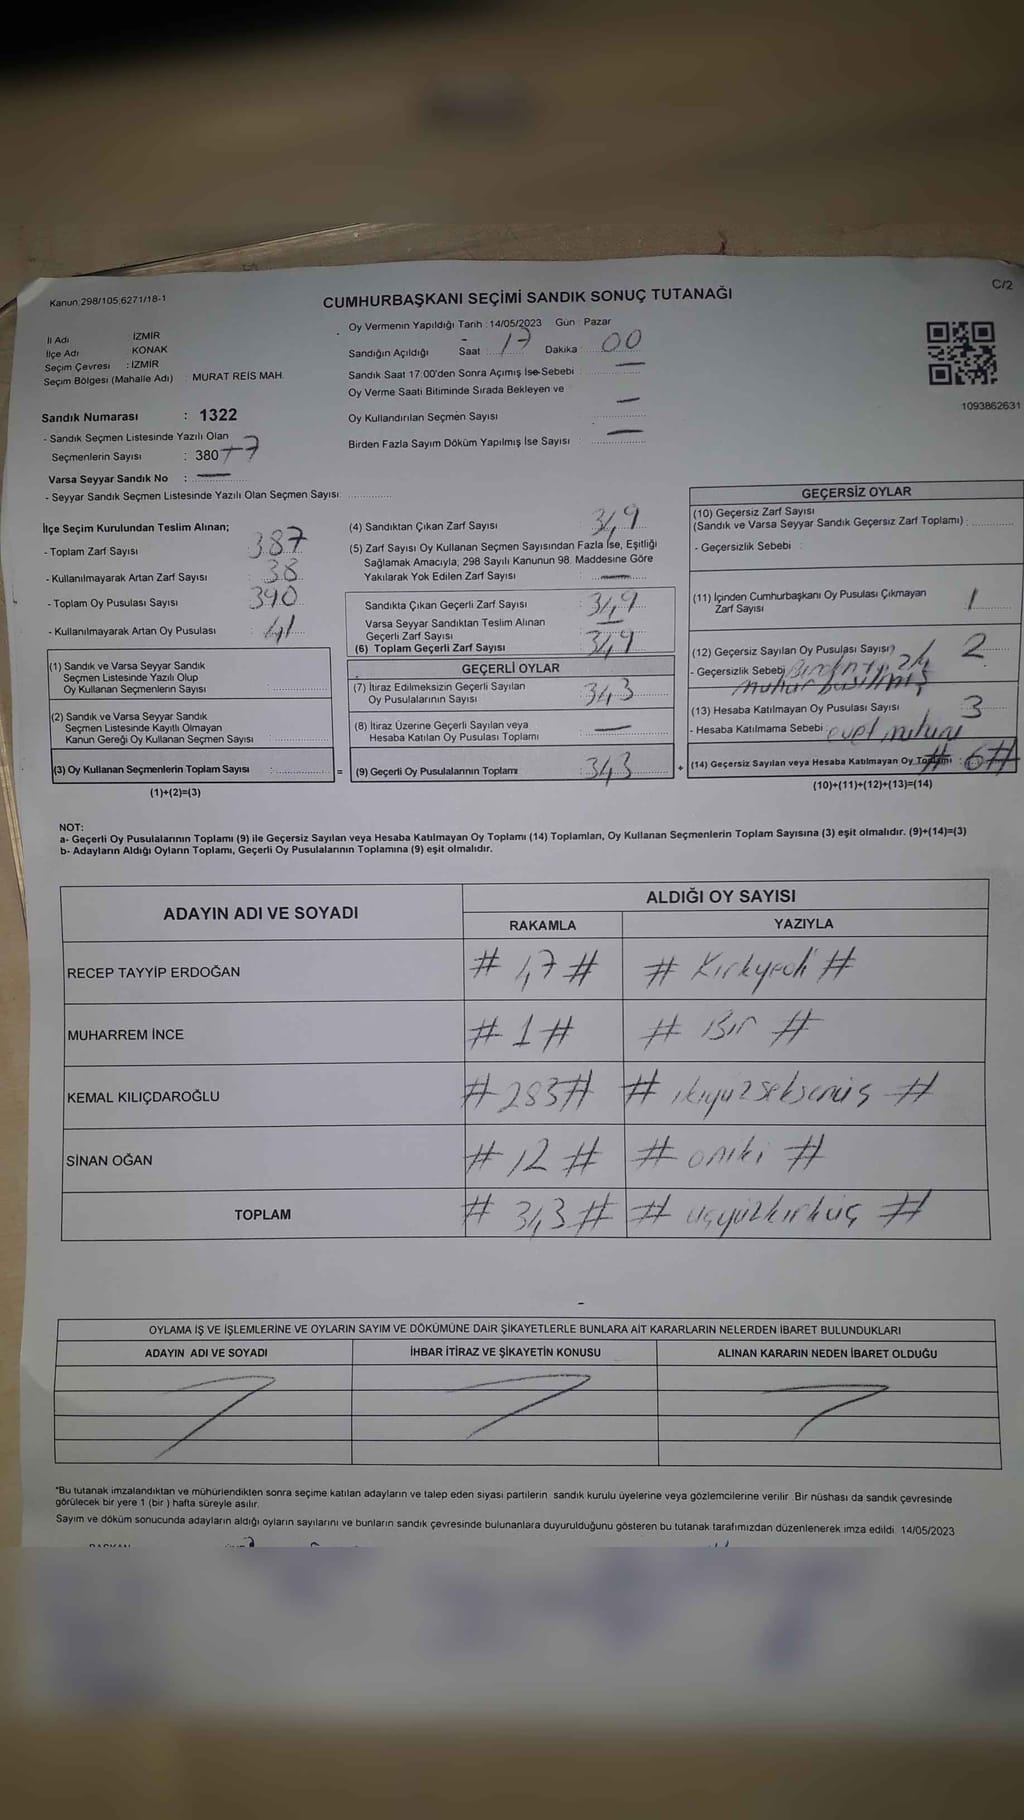 Kanun 298/105,6271/18-1
C/2
CUMHURBAŞKANI SEÇİMİ SANDIK SONUÇ TUTANAĞI
İl Adı İZMİR
İlçe Adı KONAK
Seçim Çevresi : İZMİR
Seçim Bölgesi (Mahalle Adı) : MURAT REİS MAH.
Sandık Numarası : 1322
- Sandık Seçmen Listesinde Yazılı Olan
Seçmenlerin Sayısı : 380 +7
Varsa Seyyar Sandık No : —
- Seyyar Sandık Seçmen Listesinde Yazılı Olan Seçmen Sayısı: ..............
Oy Vermenin Yapıldığı Tarih : 14/05/2023 Gün Pazar
Sandığın Açıldığı Saat : 17 Dakika : 00
Sandık Saat 17:00'den Sonra Açımış İse Sebebi : —
Oy Verme Saati Bitiminde Sırada Bekleyen ve
Oy Kullandırılan Seçmen Sayısı —
Birden Fazla Sayım Döküm Yapılmış İse Sayısı : —
1093862631
İlçe Seçim Kurulundan Teslim Alınan;
- Toplam Zarf Sayısı : 387
- Kullanılmayarak Artan Zarf Sayısı : 38
- Toplam Oy Pusulası Sayısı : 390
- Kullanılmayarak Artan Oy Pusulası : 41
(1) Sandık ve Varsa Seyyar Sandık
Seçmen Listesinde Yazılı Olup
Oy Kullanan Seçmenlerin Sayısı : ..............
(2) Sandık ve Varsa Seyyar Sandık
Seçmen Listesinde Kayıtlı Olmayan
Kanun Gereği Oy Kullanan Seçmen Sayısı : ..............
(3) Oy Kullanan Seçmenlerin Toplam Sayısı : .............. =
(1)+(2)=(3)
(4) Sandıktan Çıkan Zarf Sayısı : 349
(5) Zarf Sayısı Oy Kullanan Seçmen Sayısından Fazla İse, Eşitliği
Sağlamak Amacıyla; 298 Sayılı Kanunun 98. Maddesine Göre
Yakılarak Yok Edilen Zarf Sayısı : —
Sandıkta Çıkan Geçerli Zarf Sayısı : 349
Varsa Seyyar Sandıktan Teslim Alınan
Geçerli Zarf Sayısı : —
(6) Toplam Geçerli Zarf Sayısı : 349
GEÇERLİ OYLAR
(7) İtiraz Edilmeksizin Geçerli Sayılan
Oy Pusulalarının Sayısı : 343
(8) İtiraz Üzerine Geçerli Sayılan veya
Hesaba Katılan Oy Pusulası Toplamı : —
(9) Geçerli Oy Pusulalarının Toplamı : 343 +
GEÇERSİZ OYLAR
(10) Geçersiz Zarf Sayısı
(Sandık ve Varsa Seyyar Sandık Geçersiz Zarf Toplamı) : ..............
- Geçersizlik Sebebi :
(11) İçinden Cumhurbaşkanı Oy Pusulası Çıkmayan
Zarf Sayısı : 1
(12) Geçersiz Sayılan Oy Pusulası Sayısı? 2
- Geçersizlik Sebebi
mühür basılmış
(13) Hesaba Katılmayan Oy Pusulası Sayısı : 3
- Hesaba Katılmama Sebebi : evet mührü
(14) Geçersiz Sayılan veya Hesaba Katılmayan Oy Toplamı : # 6 #
(10)+(11)+(12)+(13)=(14)
NOT:
a- Geçerli Oy Pusulalarının Toplamı (9) ile Geçersiz Sayılan veya Hesaba Katılmayan Oy Toplamı (14) Toplamları, Oy Kullanan Seçmenlerin Toplam Sayısına (3) eşit olmalıdır. (9)+(14)=(3)
b- Adayların Aldığı Oyların Toplamı, Geçerli Oy Pusulalarının Toplamına (9) eşit olmalıdır.
ADAYIN ADI VE SOYADI ALDIĞI OY SAYISI
RAKAMLA YAZIYLA
RECEP TAYYİP ERDOĞAN # 47 # # Kırkyedi #
MUHARREM İNCE # 1 # # Bir #
KEMAL KILIÇDAROĞLU # 283 # # ikiyüzseksenüç #
SİNAN OĞAN # 12 # # oniki #
TOPLAM # 343 # # üçyüzkırküç #
OYLAMA İŞ VE İŞLEMLERİNE VE OYLARIN SAYIM VE DÖKÜMÜNE DAİR ŞİKAYETLERLE BUNLARA AİT KARARLARIN NELERDEN İBARET BULUNDUKLARI
ADAYIN ADI VE SOYADI İHBAR İTİRAZ VE ŞİKAYETİN KONUSU ALINAN KARARIN NEDEN İBARET OLDUĞU
*Bu tutanak imzalandıktan ve mühürlendikten sonra seçime katılan adayların ve talep eden siyasi partilerin sandık kurulu üyelerine veya gözlemcilerine verilir. Bir nüshası da sandık çevresinde
görülecek bir yere 1 (bir ) hafta süreyle asılır.
Sayım ve döküm sonucunda adayların aldığı oyların sayılarını ve bunların sandık çevresinde bulunanlara duyurulduğunu gösteren bu tutanak tarafımızdan düzenlenerek imza edildi. 14/05/2023